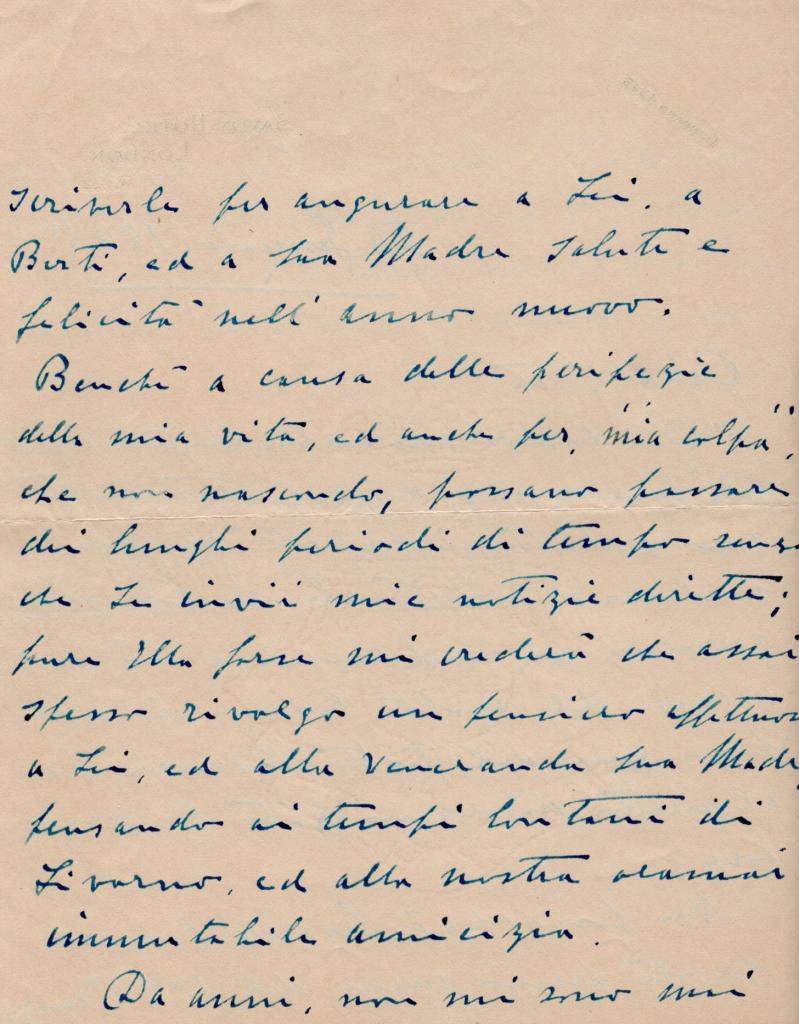 SAVOY HOTEL
LONDON
scriverle per augurare a Lei, a
Berti, ed a Sua Madre salute e
felicità nell' anno nuovo.
Benchè a causa delle peripezie
della mia vita, ed anche per "mia colpa",
che non nascondo, possano passare
dei lunghi periodi di tempo senza
che Le invii mie notizie dirette;
pure Ella forse mi crederà che assai
spesso rivolgo un pensiero affettuoso
a Lei, ed alla Veneranda Sua Madre
pensando ai tempi lontani di
Livorno, ed alla nostra oramai
immutabile amicizia.
Da anni, non mi sono mai